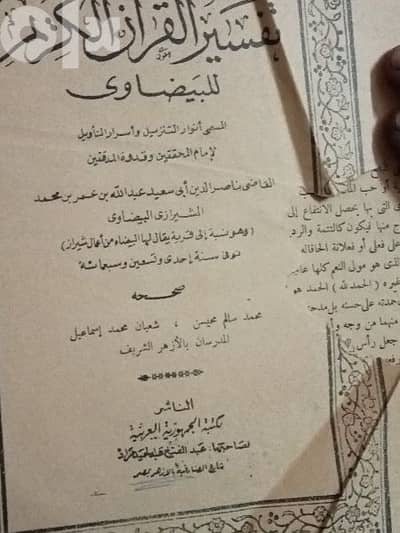 تفسير القرآن الكريم
للبيضاوى
المسمى أنوار التنزيل وأسرار التأويل
لإمام المحققين وقدوة المدققين
القاضى ناصر الدين أبى سعيد عبد الله بن عمر بن محمد
الشيرازى البيضاوى
(وهو نسبة إلى قرية يقال لها البيضاء من أعمال شيراز)
توفى سنة إحدى وتسعين وسبعمائة
صححه
محمد سالم محيسن ، شعبان محمد إسماعيل
المدرسان بالأزهر الشريف
الناشر
مكتبة الجمهورية العربية
لصاحبها: عبد الفتاح عبد الحميد مراد
شارع الصنادقية بالأزهر بمصر
أو حب الله
التى بها يحصل الانتفاع إلى
منها ليكون كالتتمة والرد
على فعلى أو فعلانة الخاقاله
الذى هو مولى النعم كلها
غيره (الحمد لله) الحمد هو
حمدته على حسنه بل مدحته
منهما من وجه
جعل رأس